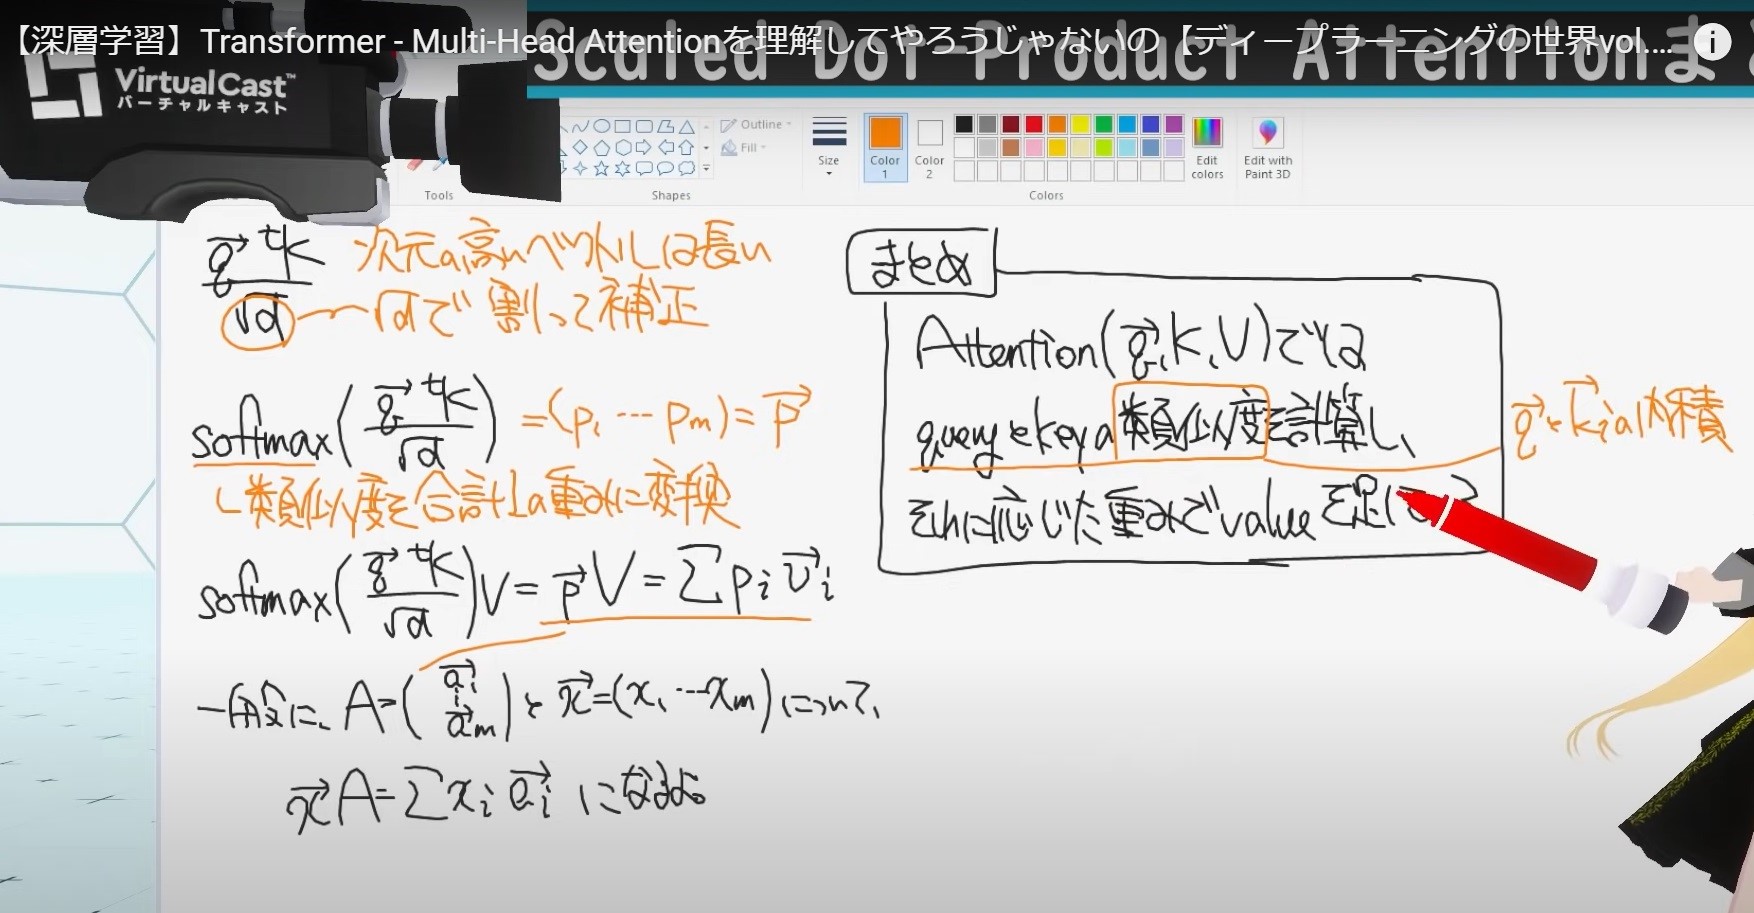 【深層学習】Transformer - Multi-Head Attentionを理解してやろうじゃないの【ディープラーニングの世界vol....
Scaled Dot-Product Attentionまと
VirtualCast™
バーチャルキャスト
Outline
Fill
Size
Color 1
Color 2
Edit colors
Edit with Paint 3D
Tools
Shapes
Colors
q⃗ ᵗK / √d
次元の高いベクトルは長い
√dで割って補正
softmax(q⃗ ᵗK / √d) = (p₁ … pₘ) = p⃗
類似度を合計1の重みに変換
softmax(q⃗ ᵗK / √d)V = p⃗V = Σpᵢv⃗ᵢ
一般に、A=(a⃗₁ ⋮ a⃗ₘ)と x⃗=(x₁ … xₘ)について、
x⃗A=Σxᵢa⃗ᵢ になるよ。
まとめ
Attention(q⃗,K,V)では
queryとkeyの類似度を計算し、
それに応じた重みでvalueを足し
q⃗とk⃗ᵢの内積